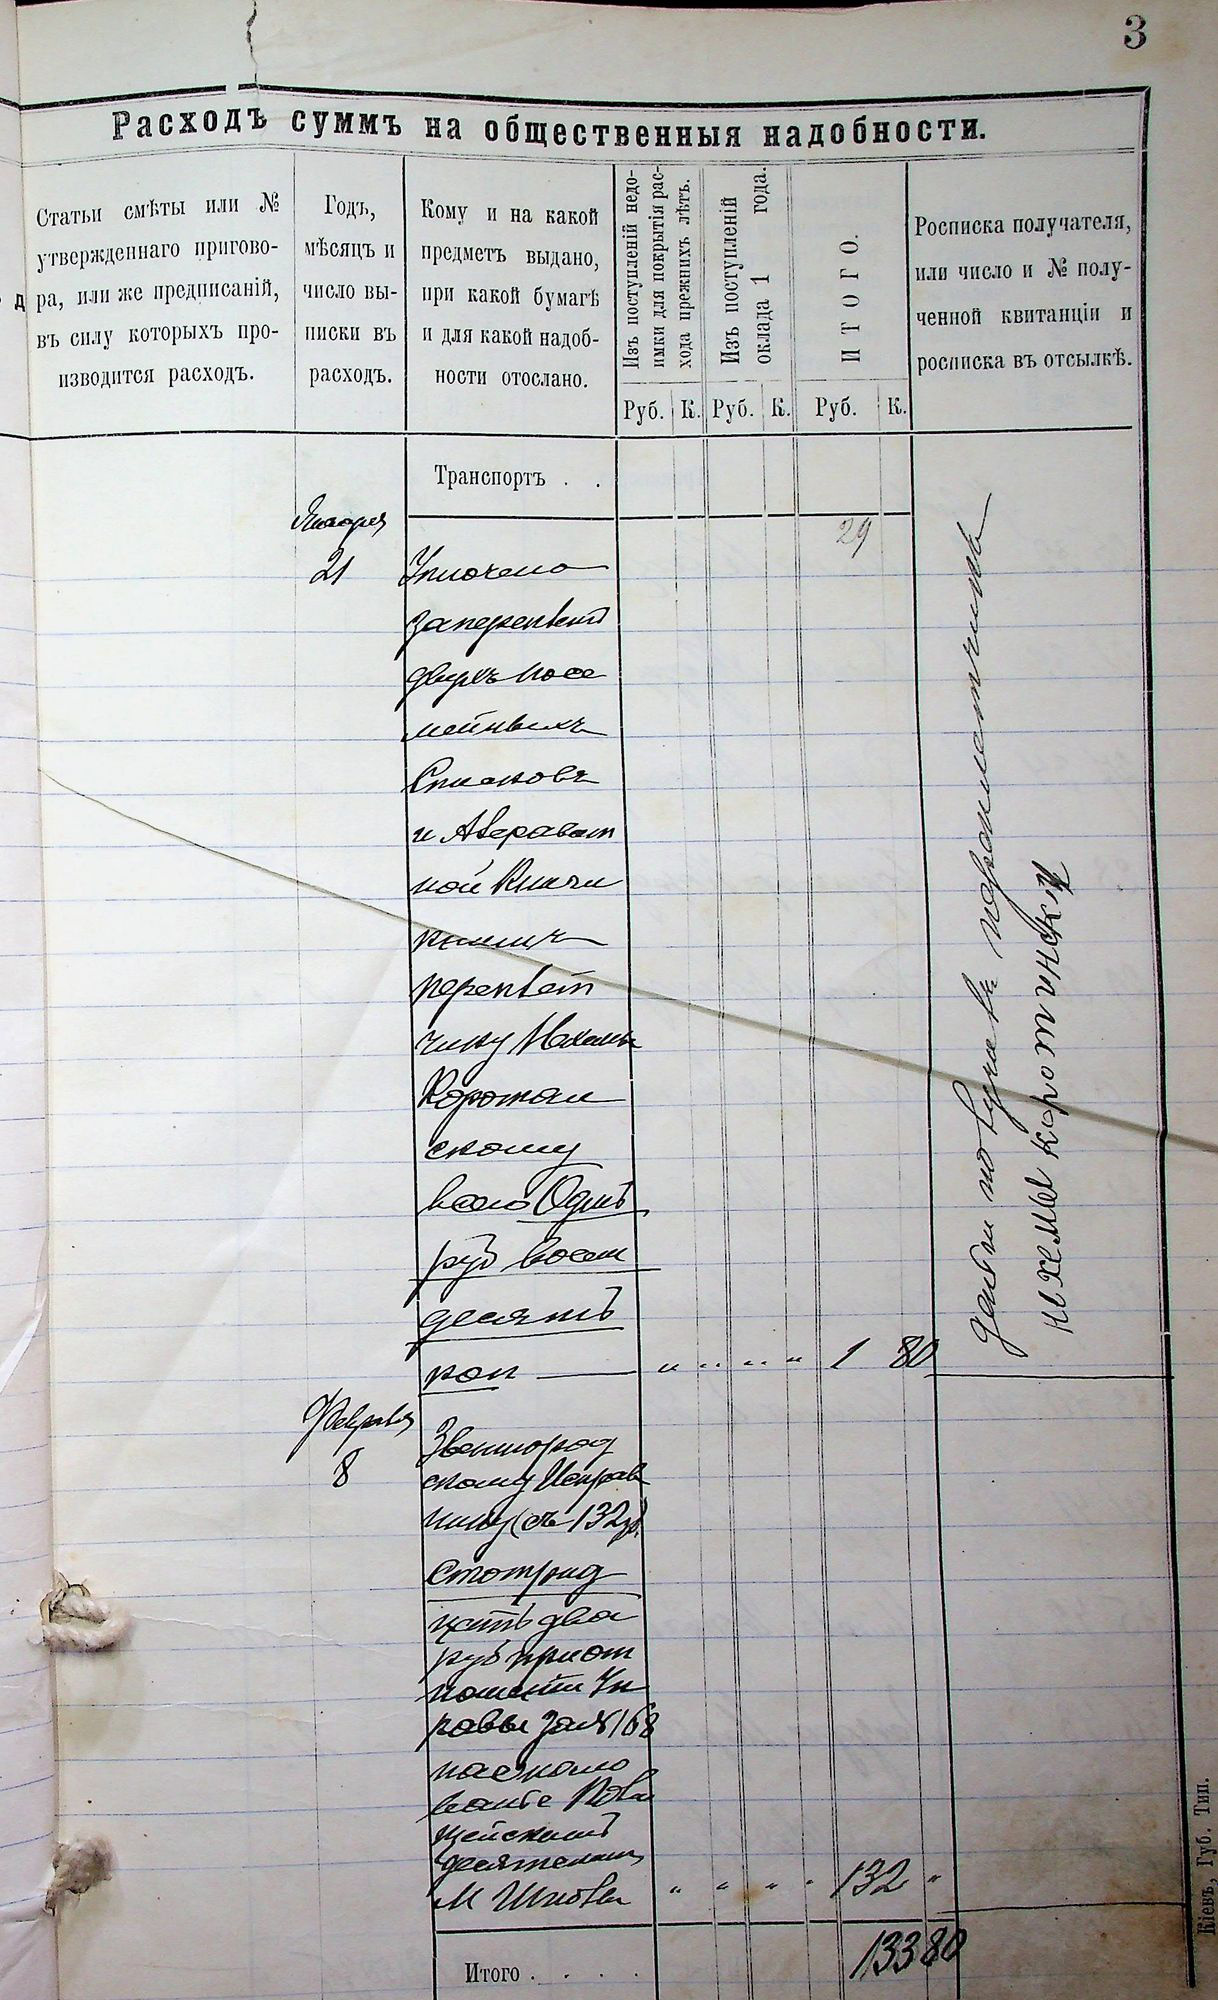 3
Расходъ суммъ на общественныя надобности.
Статьи смѣты или №
утвержденнаго пригово-
ра, или же предписаній,
въ силу которыхъ про-
изводится расходъ.
Годъ,
мѣсяцъ и
число вы-
писки въ
расходъ.
Кому и на какой
предметъ выдано,
при какой бумагѣ
и для какой надоб-
ности отослано.
Изъ поступленій недо-
имки для покрытія рас-
хода прежнихъ лѣтъ.
Изъ поступленій
оклада 1 года.
ИТОГО.
Росписка получателя,
или число и № полу-
ченной квитанціи и
росписка въ отсылкѣ.
Руб. К. Руб. К. Руб. К.
Транспортъ . .
29
Января
21
Уплочено
за переплетъ
двухъ посе
мейныхъ
Списковъ
и
ной Книги
переплет
чику
Коротин
скому
всего Одинъ
руб восем
десятъ
коп — " " " " 1 80
получивъ переплетчикъ
коротинскій
Февраля
8
Звенигород
скому Исправ
нику (съ 132 р)
Стотрид
цать два
руб приот
ношении Уп
равы за № 168
десятскимъ
" " " " 132 "
Итого . . . . 133 80
Кіевъ, Губ. Тип.